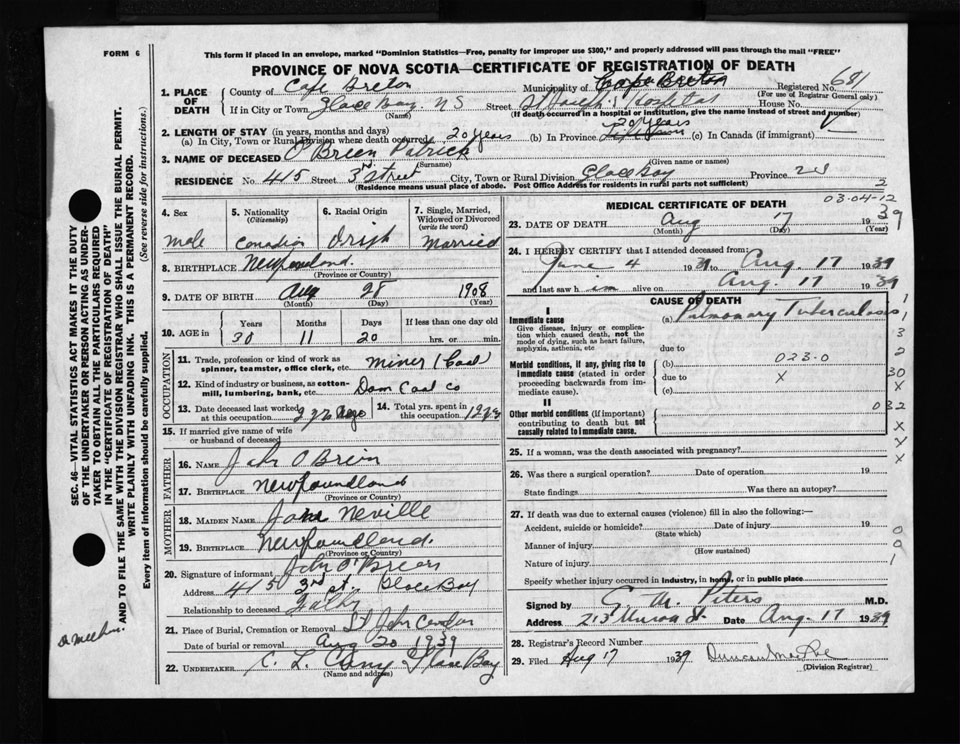 FORM 6
This form if placed in an envelope, marked "Dominion Statistics—Free, penalty for improper use $300," and properly addressed will pass through the mail "FREE"
PROVINCE OF NOVA SCOTIA—CERTIFICATE OF REGISTRATION OF DEATH
681
1. PLACE OF DEATH
County of Cape Breton Municipality of Cape Breton Registered No.
(For use of Registrar General only)
If in City or Town Glace Bay. NS Street St Joseph's Hospital House No.
(Name) (If death occurred in a hospital or institution, give the name instead of street and number)
2. LENGTH OF STAY (in years, months and days)
20 years
(a) In City, Town or Rural Division where death occurred 20 years (b) In Province (c) In Canada (if immigrant)
3. NAME OF DECEASED O'Brien Patrick
(Surname) (Given name or names)
RESIDENCE No. 415 Street 3rd Street City, Town or Rural Division Glace Bay Province NS
(Residence means usual place of abode. Post Office Address for residents in rural parts not sufficient)
2
SEC. 46 - VITAL STATISTICS ACT MAKES IT THE DUTY
OF THE UNDERTAKER OR PERSON ACTING AS UNDER-
TAKER TO OBTAIN ALL THE PARTICULARS REQUIRED
IN THE "CERTIFICATE OF REGISTRATION OF DEATH"
AND TO FILE THE SAME WITH THE DIVISION REGISTRAR WHO SHALL ISSUE THE BURIAL PERMIT.
WRITE PLAINLY WITH UNFADING INK. THIS IS A PERMANENT RECORD.
Every item of information should be carefully supplied. (See reverse side for instructions.)
4. Sex
Male
5. Nationality
(Citizenship)
Canadian
6. Racial Origin
Irish
7. Single, Married, Widowed or Divorced
(write the word)
Married
8. BIRTHPLACE Newfoundland.
(Province or Country)
9. DATE OF BIRTH Aug 28 1908
(Month) (Day) (Year)
10. AGE in
Years Months Days If less than one day old
30 11 20 hrs. or min.
OCCUPATION
11. Trade, profession or kind of work as
spinner, teamster, office clerk, etc. Miner (Coal)
12. Kind of industry or business, as cotton-
mill, lumbering, bank, etc. Dom Coal Co
13. Date deceased last worked
at this occupation
14. Total yrs. spent in
this occupation
15. If married give name of wife
or husband of deceased
FATHER
16. NAME John O'Brien
17. BIRTHPLACE Newfoundland
(Province or Country)
MOTHER
18. MAIDEN NAME Neville
19. BIRTHPLACE Newfoundland.
(Province or Country)
20. Signature of informant John O'Brien
Address 415 3rd st. Glace Bay
Relationship to deceased Father
21. Place of Burial, Cremation or Removal St John
Date of burial or removal Aug 20 1939
22. UNDERTAKER C. L. Glace Bay
(Name and address)
MEDICAL CERTIFICATE OF DEATH
03-04-12
23. DATE OF DEATH Aug 17 1939
(Month) (Day) (Year)
24. I HEREBY CERTIFY that I attended deceased from:
June 4 1939 to Aug. 17 1939
and last saw him alive on Aug. 17 1939
CAUSE OF DEATH
I
Immediate cause
Give disease, injury or complica-
tion which caused death, not the
mode of dying, such as heart failure,
asphyxia, asthenia, etc.
(a) Pulmonary Tuberculosis
due to
Morbid conditions, if any, giving rise to
immediate cause (stated in order
proceeding backwards from im-
mediate cause).
(b) 023.0
due to X
(c)
II
Other morbid conditions (if important)
contributing to death but not
causally related to immediate cause.
032
1
1
3
2
30
X
X
X
X
25. If a woman, was the death associated with pregnancy?
26. Was there a surgical operation? Date of operation 19
State findings Was there an autopsy?
27. If death was due to external causes (violence) fill in also the following:—
Accident, suicide or homicide? Date of injury 19
(State which)
Manner of injury
(How sustained)
Nature of injury
Specify whether injury occurred in industry, in home, or in public place
0
0
1
Signed by E. M. Peters M.D.
Address 213 Union St. Date Aug. 17 1939
28. Registrar's Record Number
29. Filed Aug 17 1939 Duncan
(Division Registrar)